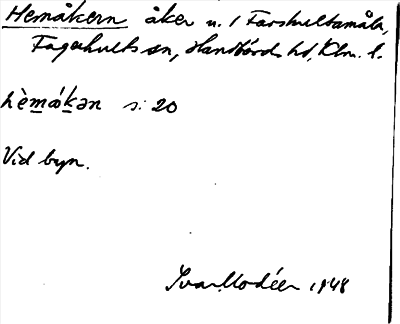 Hemåkern åker n. 1 Farshultamåla,
Fagerhults sn, Handbörds hd, Klm. l.
hèmákən s: 20
Vid byn.
Ivar Modéer 1948